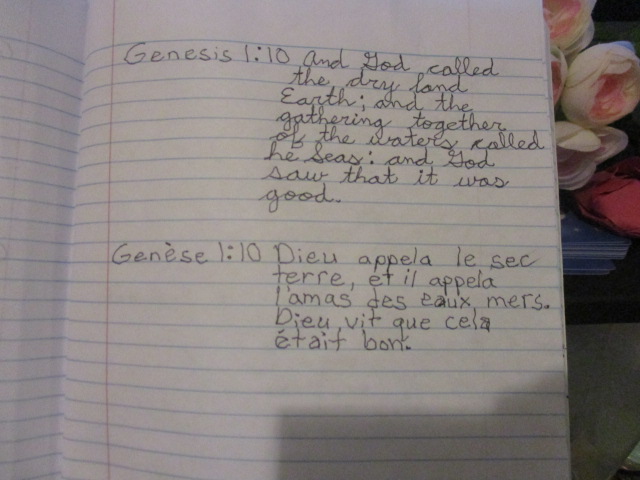 Genesis 1:10 And God called
the dry land
Earth; and the
gathering together
of the waters called
he Seas: and God
saw that it was
good.
Genèse 1:10 Dieu appela le sec
terre, et il appela
l'amas des eaux mers.
Dieu vit que cela
était bon.